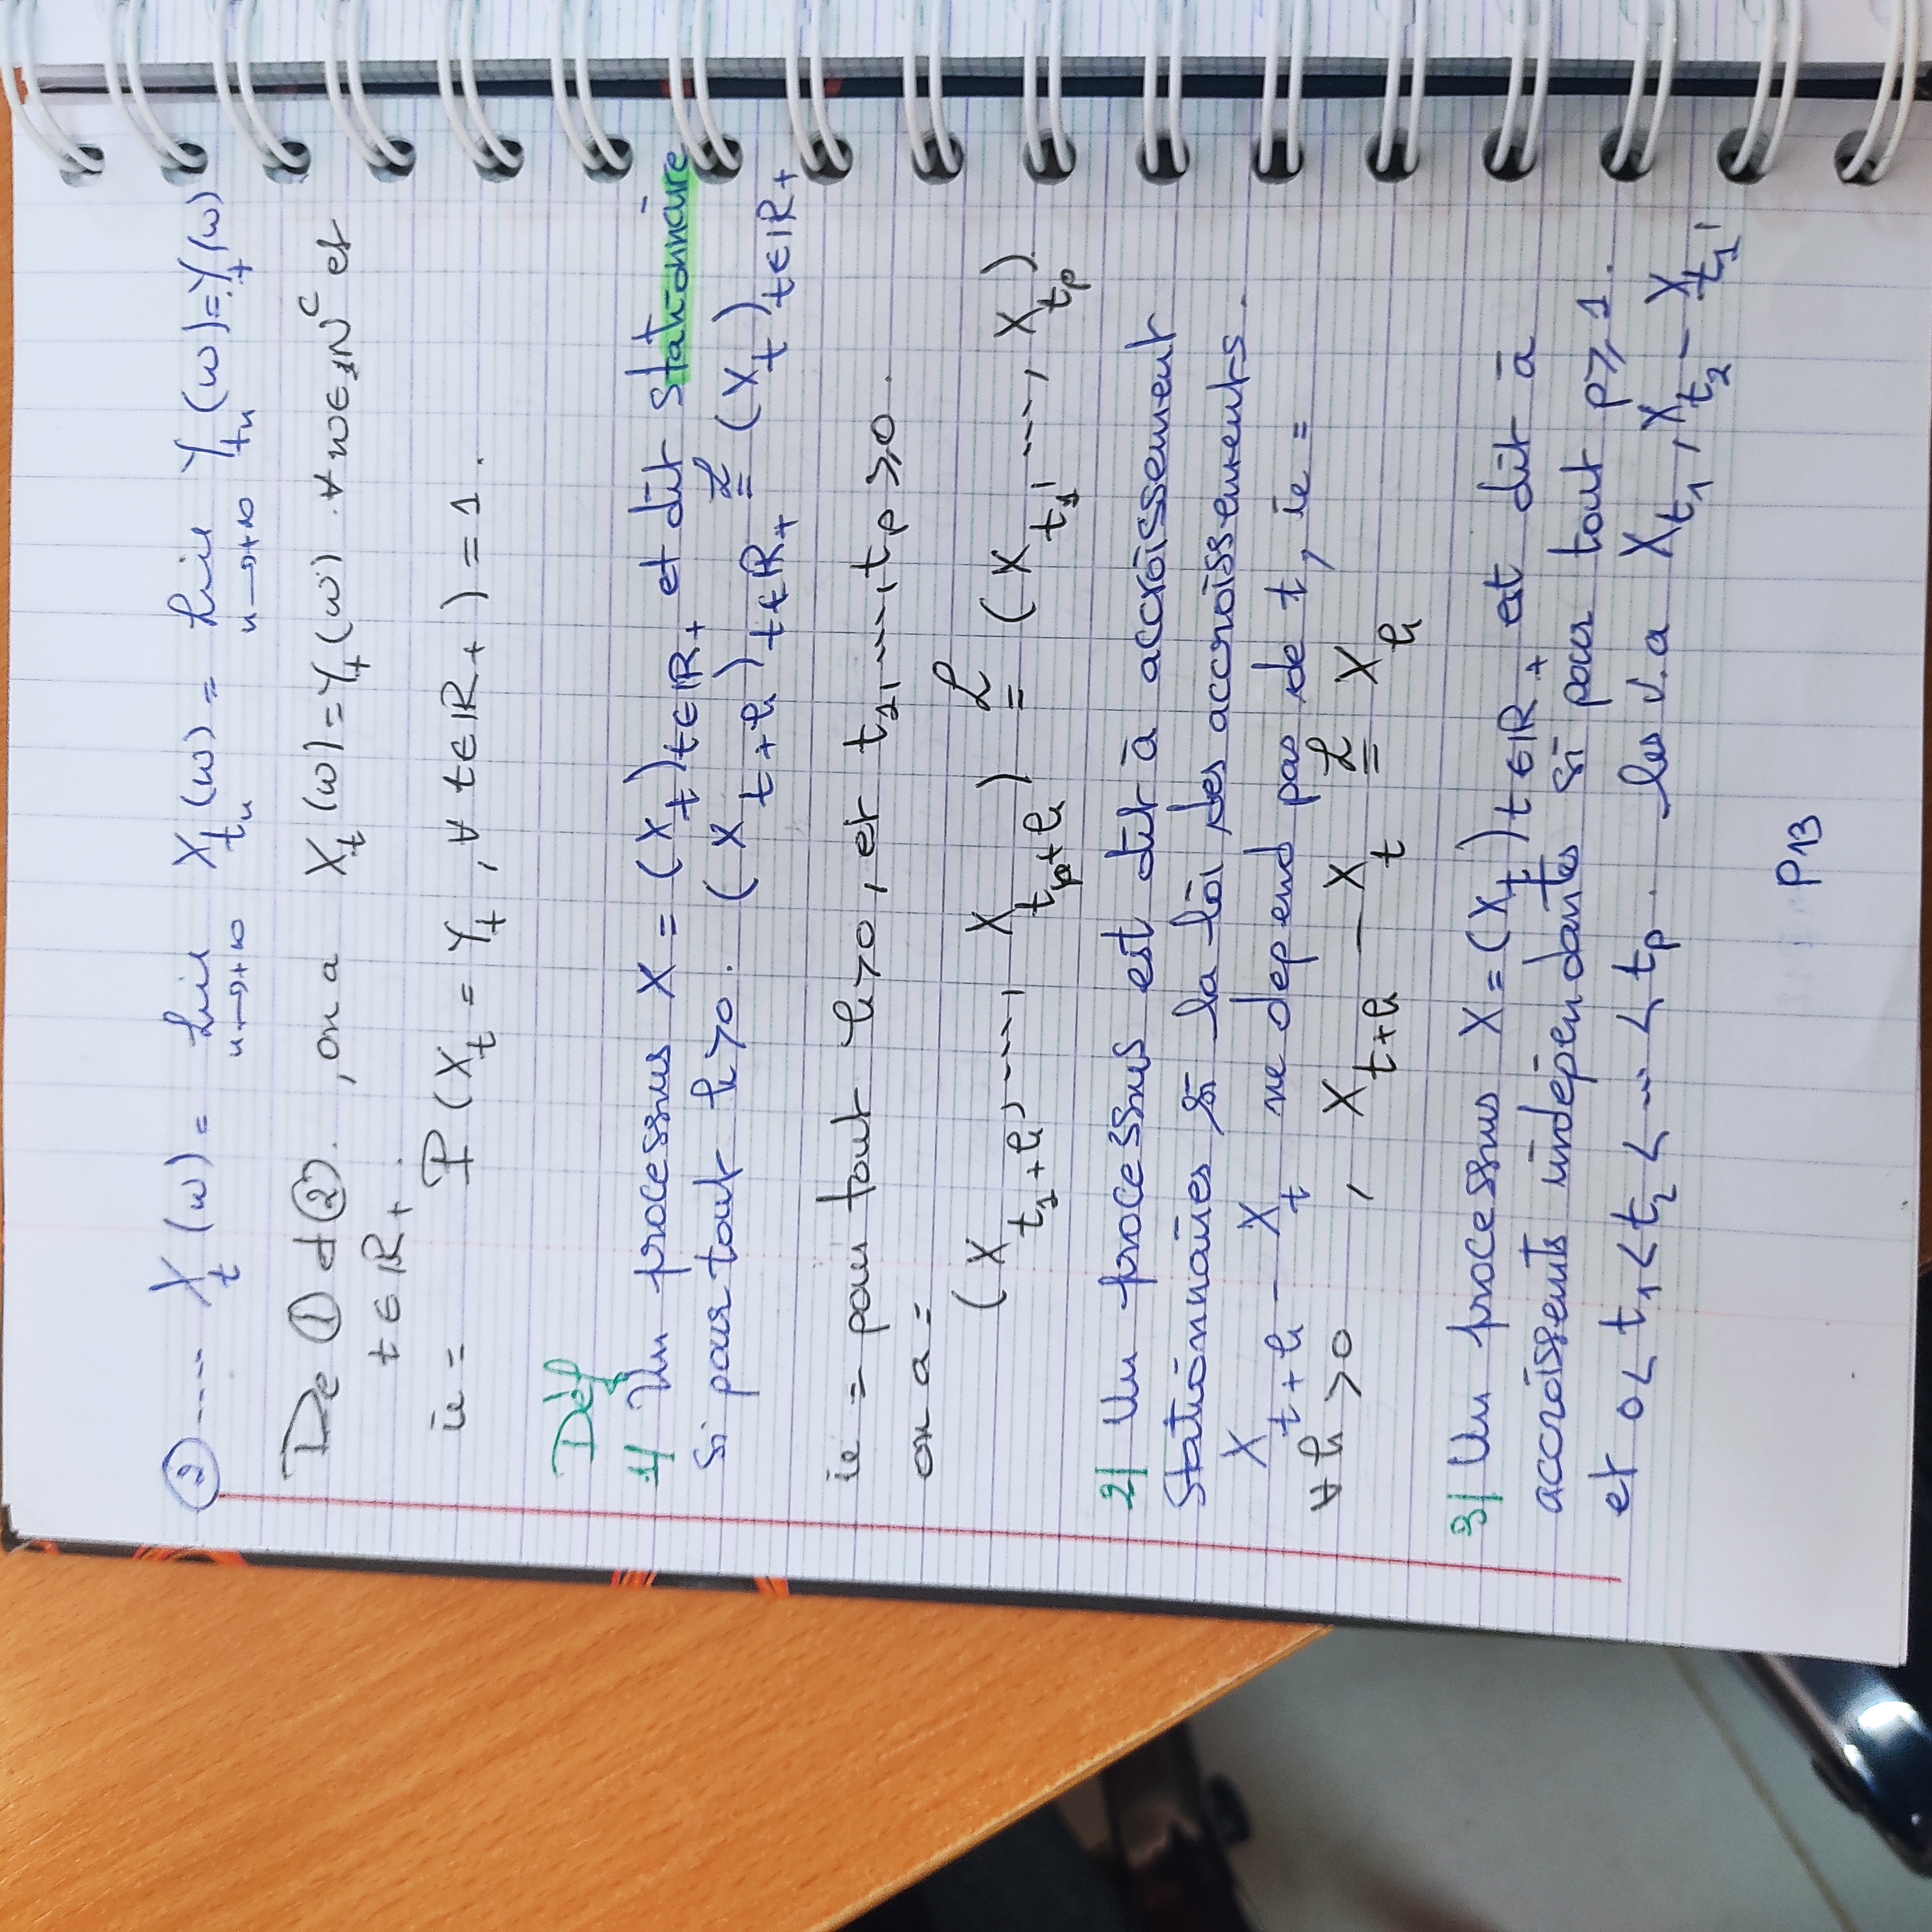 ② ---- X_t (ω) = lim_{n→+∞} X_{t_n} (ω) = lim_{n→+∞} Y_{t_n} (ω) = Y_t (ω)
De ① et ②. , on a X_t (ω) = Y_t (ω) ∀ ω ∈ N^c et
t ∈ ℝ+ .
ie = P (X_t = Y_t , ∀ t ∈ ℝ+ ) = 1 .
Déf
1/ Un processus X = (X_t)_{t∈ℝ+} et dit stationnaire
Si pour tout h > 0 . (X_{t+h})_{t∈ℝ+} =^ℒ (X_t)_{t∈ℝ+}
ie = pour tout h > 0 , et t_1, ..., t_p ≥ 0 .
on a =
(X_{t_1+h}, ----, X_{t_p+h}) =^ℒ (X_{t_1}, ---, X_{t_p})
2/ Un processus est dit à accroissement
Stationnaires si la loi des accroissements.
X_{t+h} - X_t ne depend pas de t, ie =
∀ h > 0 , X_{t+h} - X_t =^ℒ X_h
3/ Un processus X = (X_t)_{t∈ℝ+} est dit à
accroissents indépendantes si pour tout p ≥ 1 .
et 0 < t_1 < t_2 < --- < t_p . les v.a X_{t_1}, X_{t_2} - X_{t_1},
P13